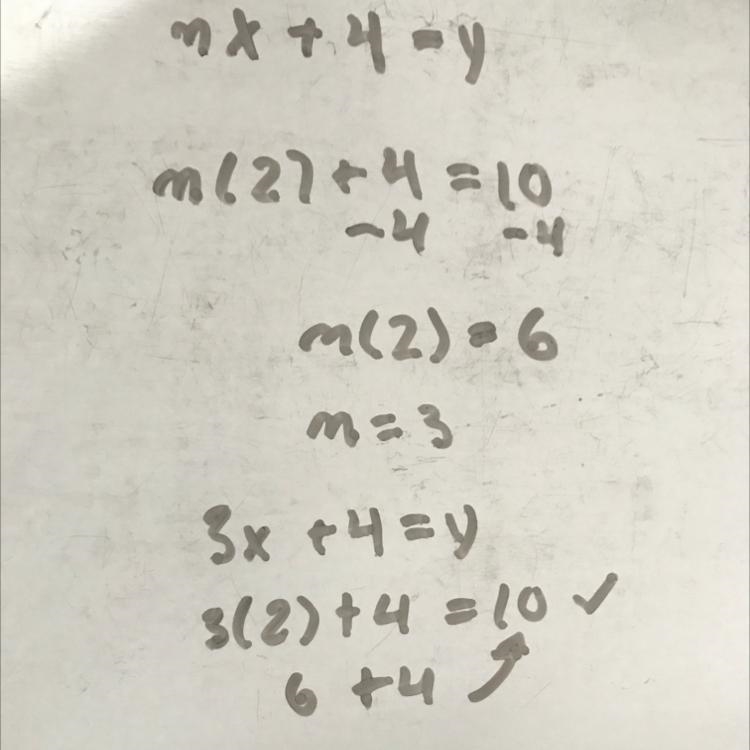 mx + 4 = y
m(2) + 4 = 10
-4 -4
m(2) = 6
m = 3
3x + 4 = y
3(2) + 4 = 10 ✓
6 + 4